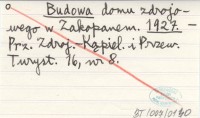 Budowa domu zdrojo-
wego w Zakopanem. 1927. –
Prz. Zdroj.-Kąpiel. i Przew.
Turyst. 16, nr 8.